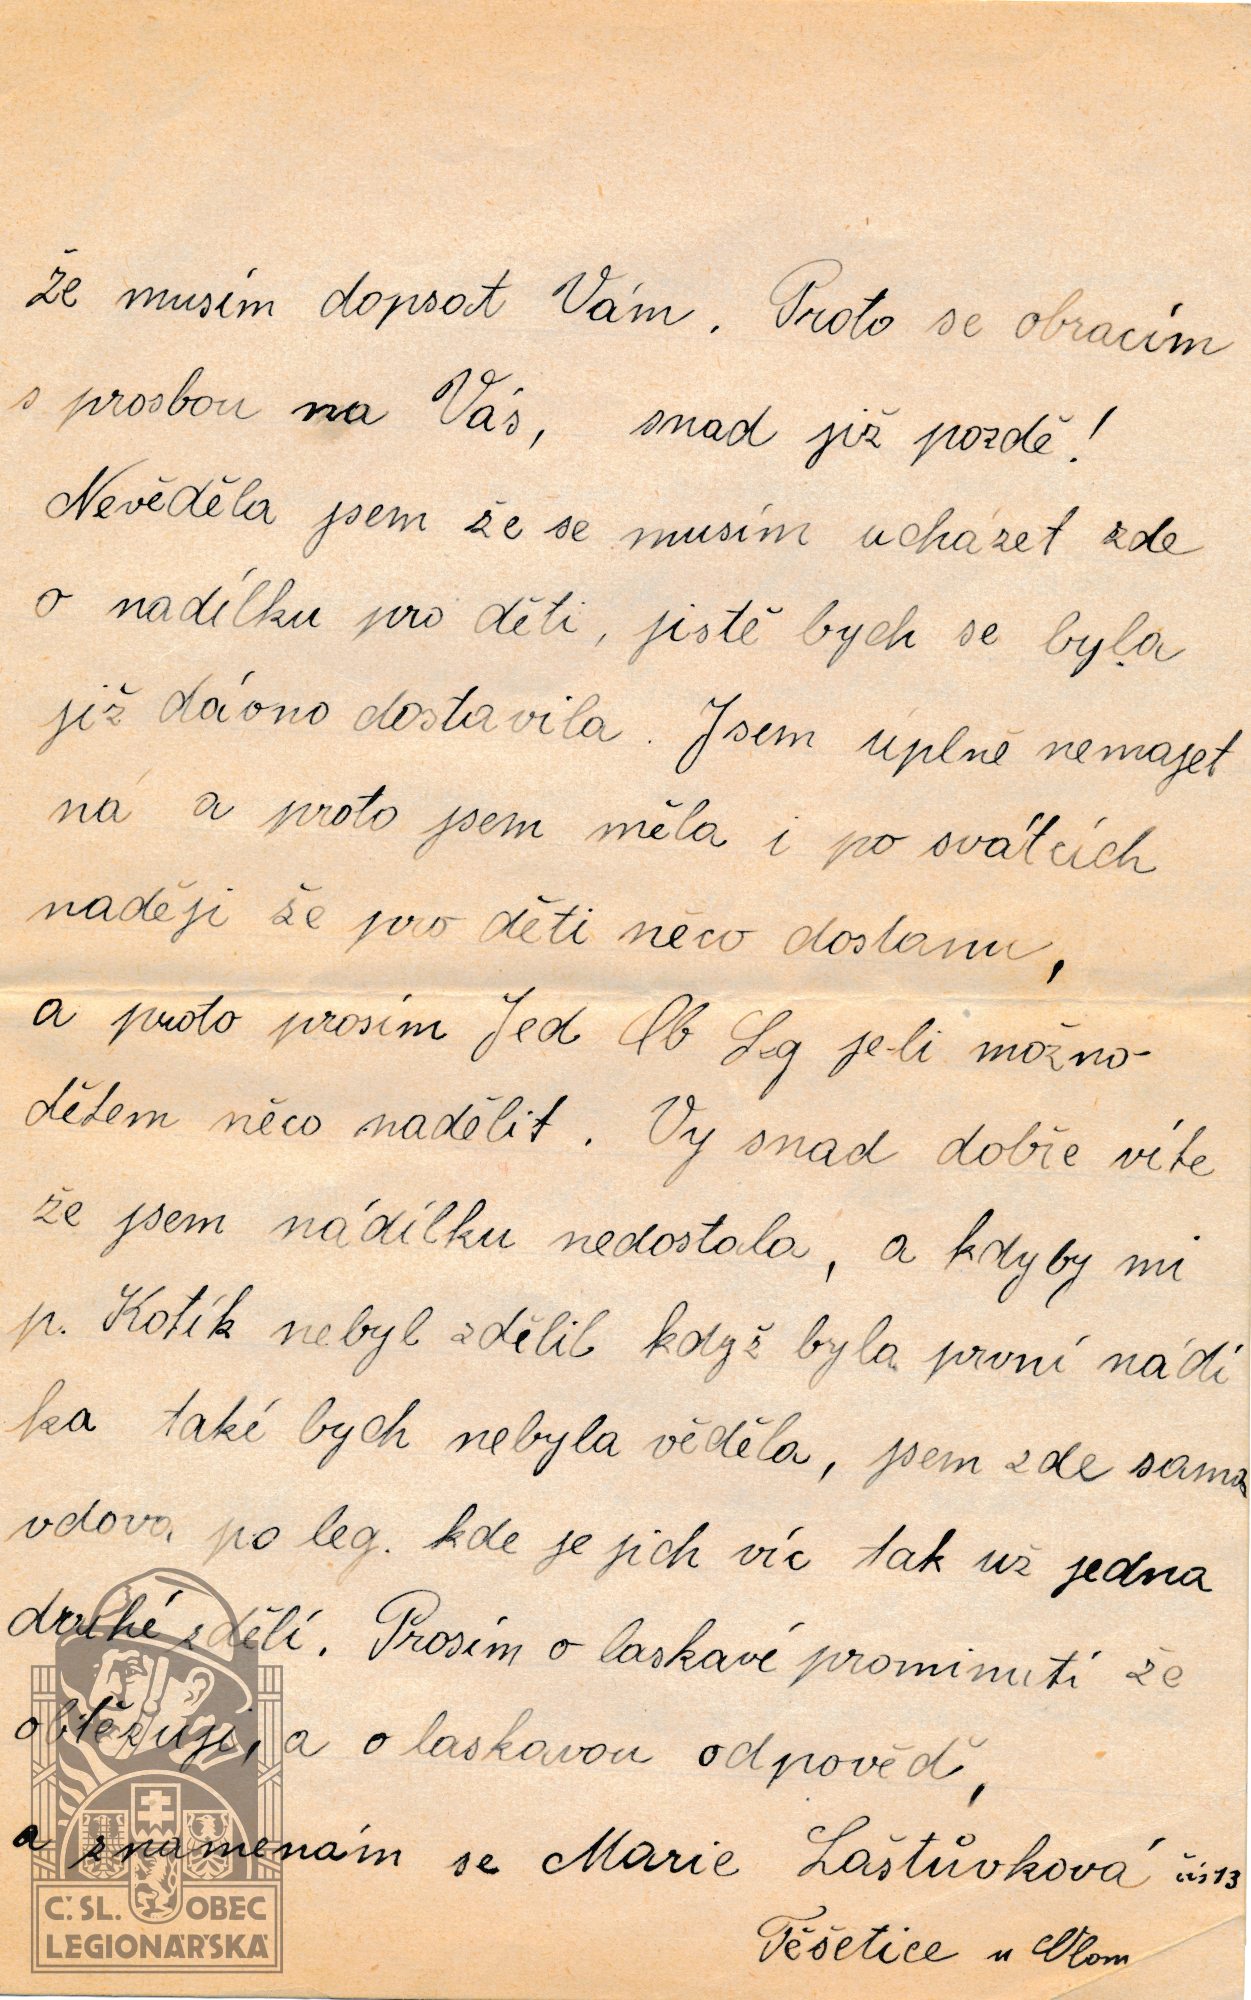 že musím dopsat Vám. Proto se obracím
s prosbou na Vás, snad již pozdě!
Nevěděla jsem že se musím ucházet zde
o nadílku pro děti, jistě bych se byla
již dávno dostavila. Jsem úplně nemajet
ná a proto jsem měla i po svátcích
naději že pro děti něco dostanu,
a proto prosím Jed Ob Leg je-li možno
dětem něco nadělit. Vy snad dobře víte
že jsem nádílku nedostala, a kdyby mi
p. Kotík nebyl zdělil když byla první nádí
ka také bych nebyla věděla, jsem zde sama
vdova po leg. kde je jich víc tak už jedna
druhé zdělí. Prosím o laskavé prominutí že
obtěžuji, a o laskavou odpověď,
a znamenám se Marie Laštůvková čís 13
Těšetice u Olom
Č. SL. OBEC
LEGIONÁŘSKÁ